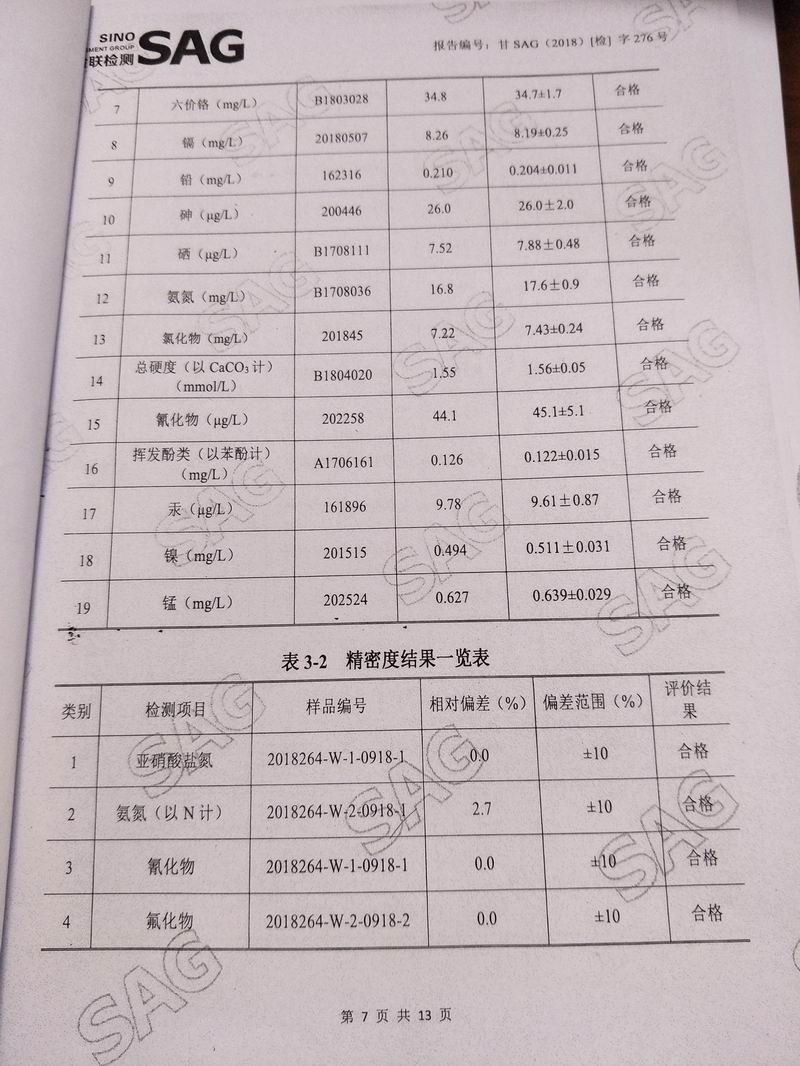 SINO
MENT GROUP
联检测 SAG 报告编号：甘 SAG（2018）[检] 字 276 号
7 六价铬（mg/L） B1803028 34.8 34.7±1.7 合格
8 镉（mg/L） 20180507 8.26 8.19±0.25 合格
9 铅（mg/L） 162316 0.210 0.204±0.011 合格
10 砷（μg/L） 200446 26.0 26.0±2.0 合格
11 硒（μg/L） B1708111 7.52 7.88±0.48 合格
12 氨氮（mg/L） B1708036 16.8 17.6±0.9 合格
13 氯化物（mg/L） 201845 7.22 7.43±0.24 合格
14 总硬度（以 CaCO₃ 计）（mmol/L） B1804020 1.55 1.56±0.05 合格
15 氰化物（μg/L） 202258 44.1 45.1±5.1 合格
16 挥发酚类（以苯酚计）（mg/L） A1706161 0.126 0.122±0.015 合格
17 汞（μg/L） 161896 9.78 9.61±0.87 合格
18 镍（mg/L） 201515 0.494 0.511±0.031 合格
19 锰（mg/L） 202524 0.627 0.639±0.029 合格
表 3-2 精密度结果一览表
类别 检测项目 样品编号 相对偏差（%） 偏差范围（%） 评价结果
1 亚硝酸盐氮 2018264-W-1-0918-1 0.0 ±10 合格
2 氨氮（以 N 计） 2018264-W-2-0918-1 2.7 ±10 合格
3 氰化物 2018264-W-1-0918-1 0.0 ±10 合格
4 氟化物 2018264-W-2-0918-2 0.0 ±10 合格
第 7 页 共 13 页